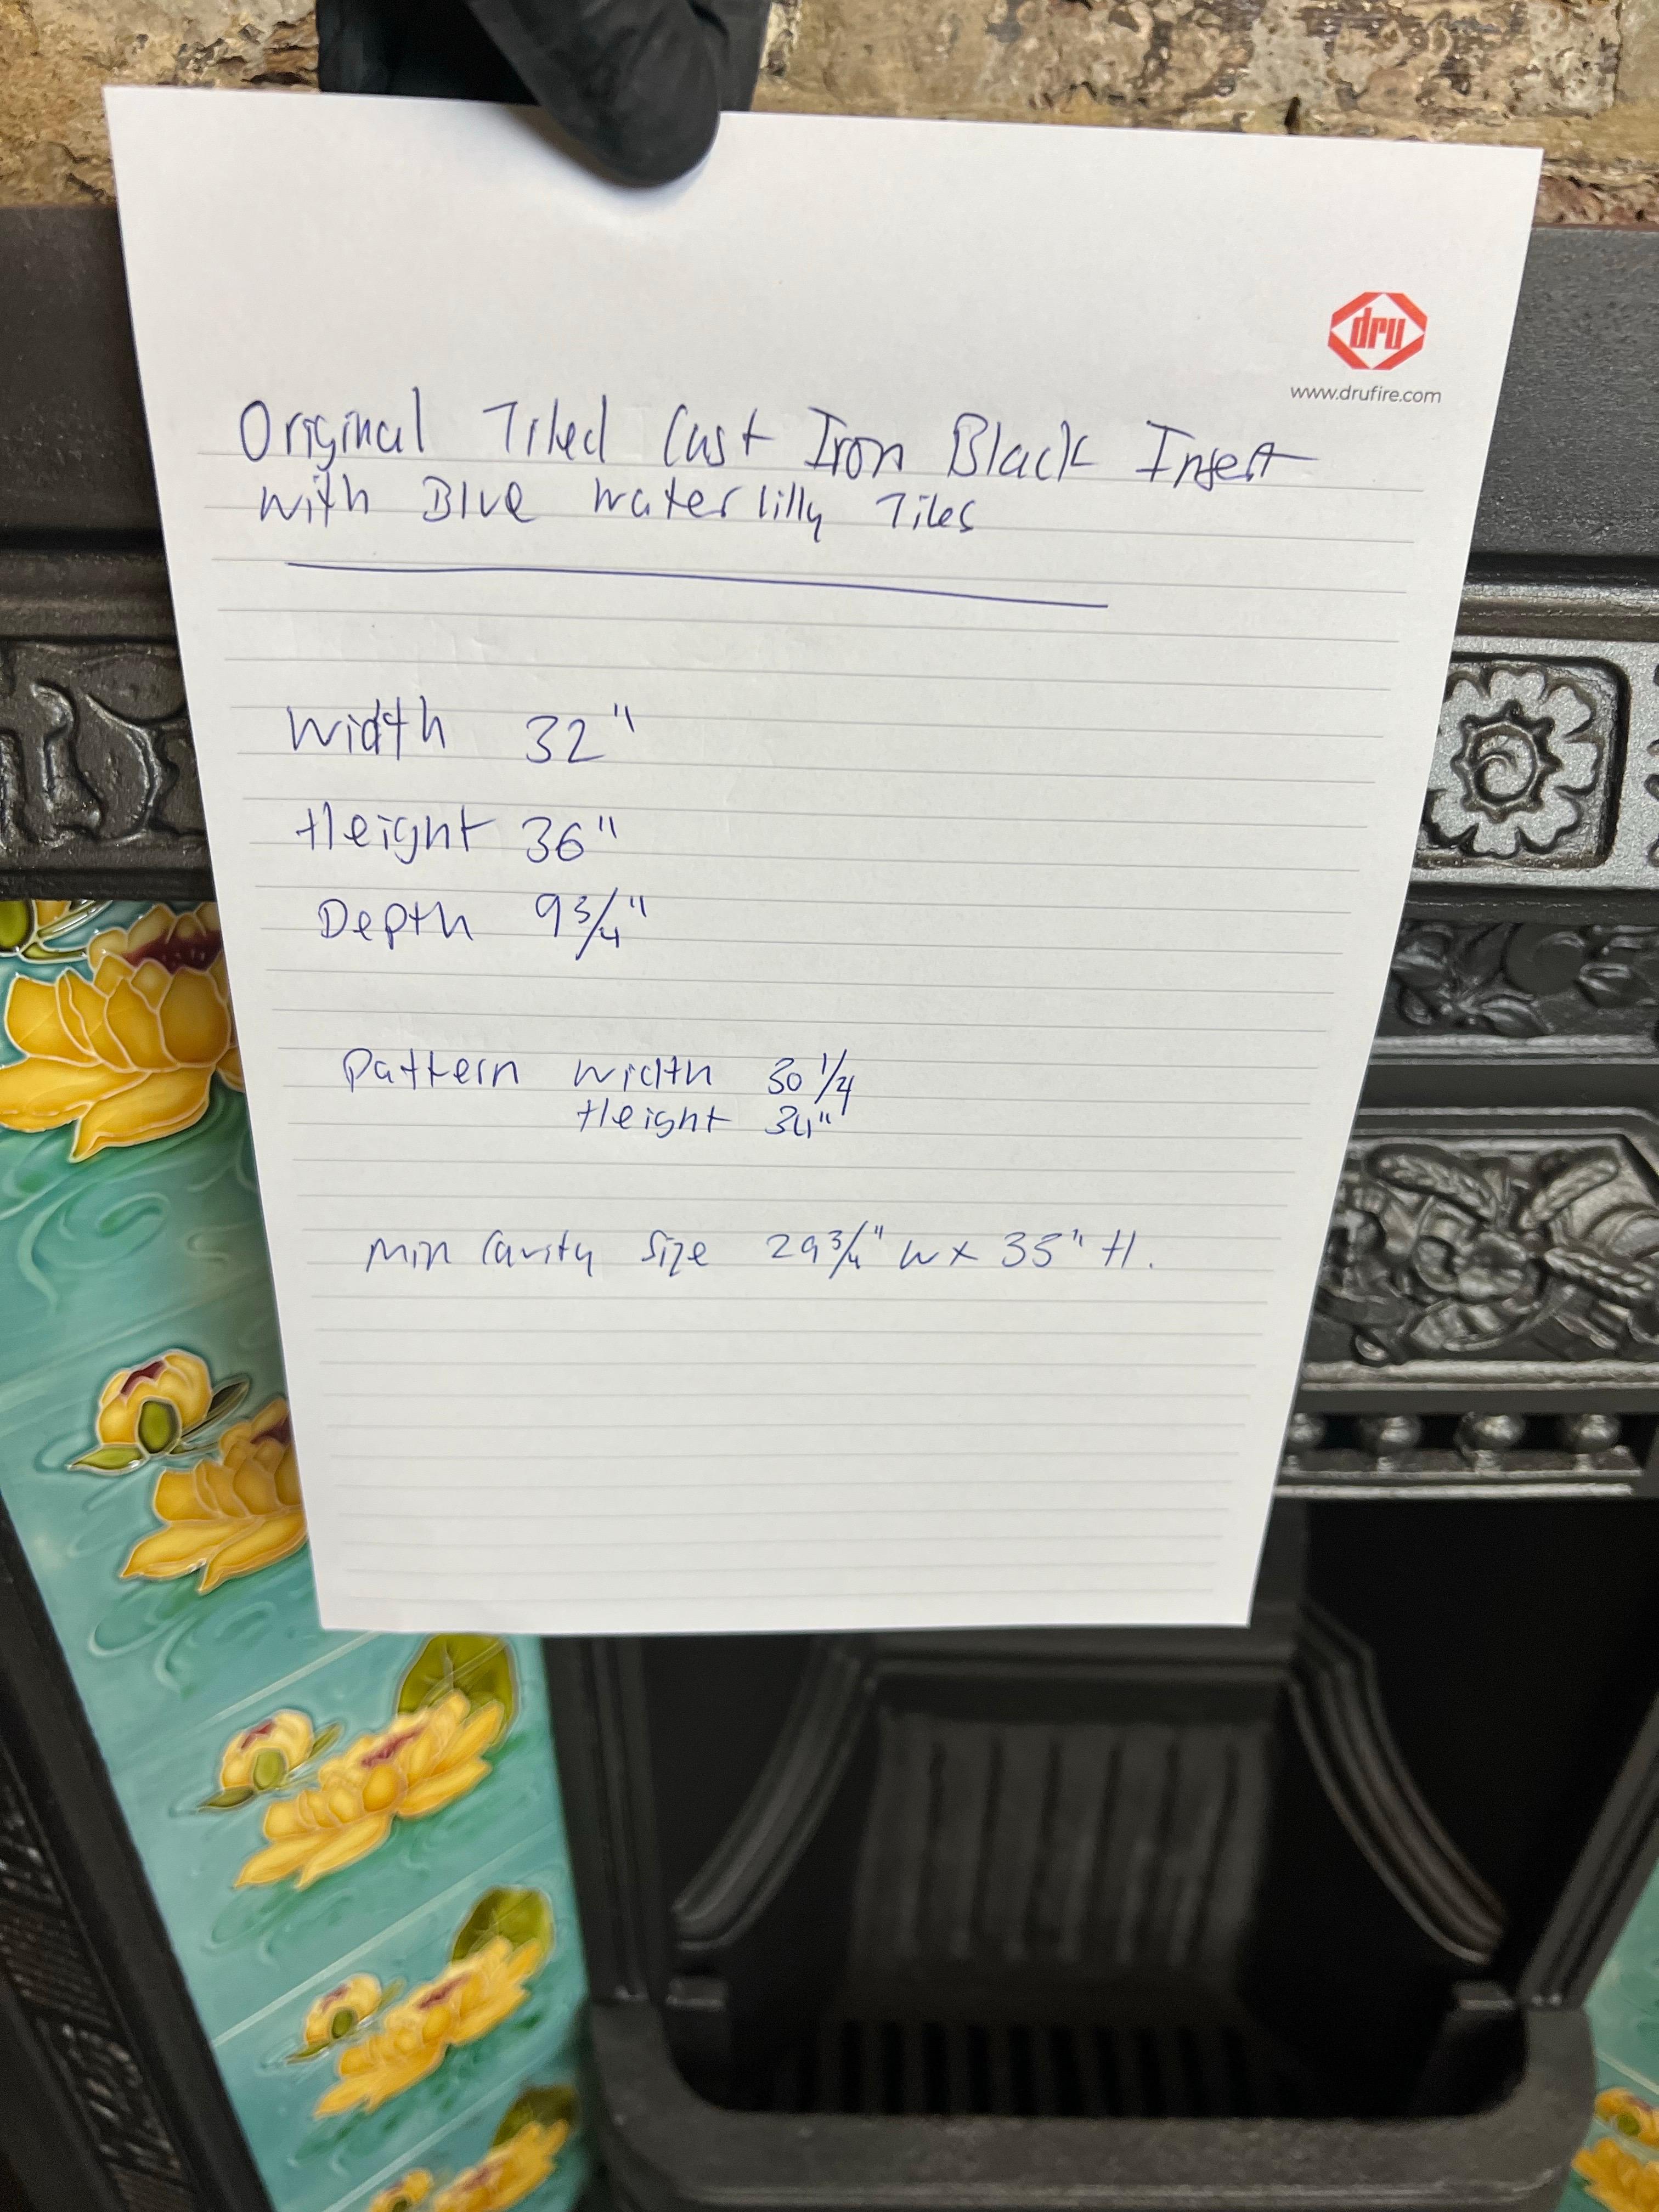 dru
www.drufire.com
Original Tiled Cast Iron Black Insert
with Blue Water lilly Tiles
Width 32"
Height 36"
Depth 9 3/4"
Pattern Width 30 1/4
Height 34"
Min Cavity Size 29 3/4" W x 35" H.